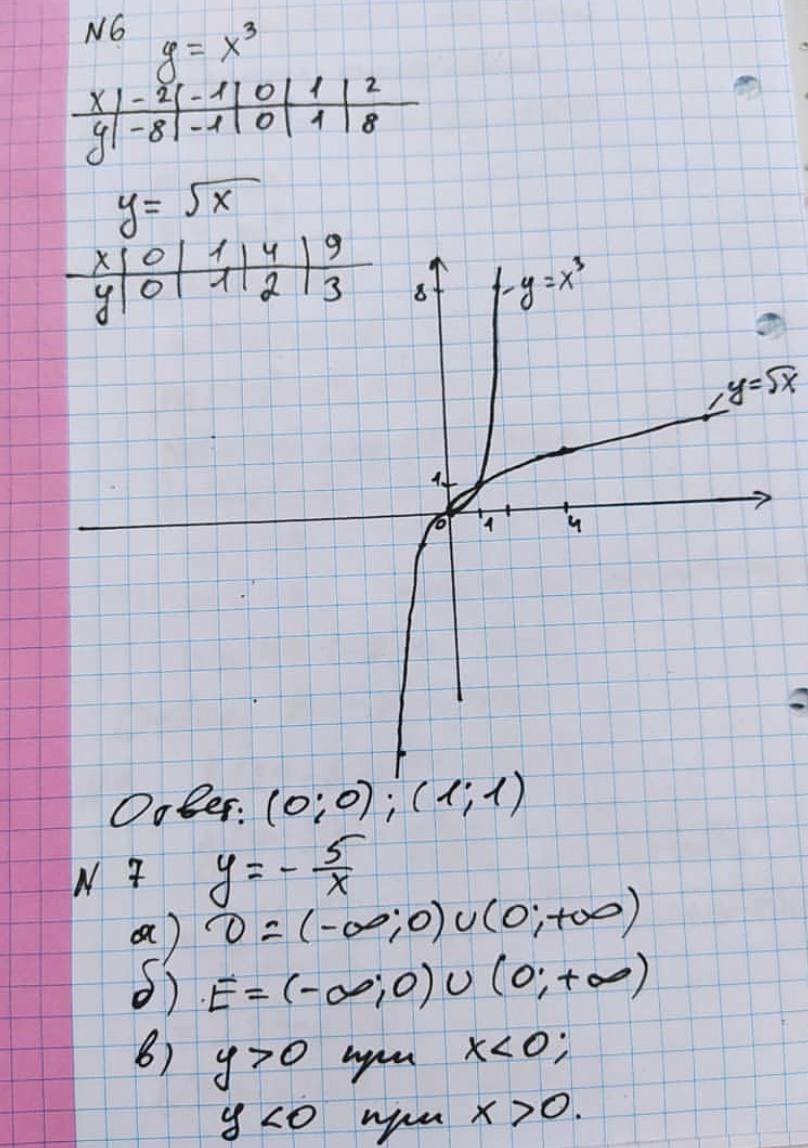 N6
y = x³
x | -2 | -1 | 0 | 1 | 2
y | -8 | -1 | 0 | 1 | 8
y = √x
x | 0 | 1 | 4 | 9
y | 0 | 1 | 2 | 3
8
y = x³
y = √x
1
0 1 4
Ответ: (0; 0); (1; 1)
N 7 y = - 5/x
а) D = (-∞; 0) ∪ (0; +∞)
б) E = (-∞; 0) ∪ (0; +∞)
в) y > 0 при x < 0;
y < 0 при x > 0.